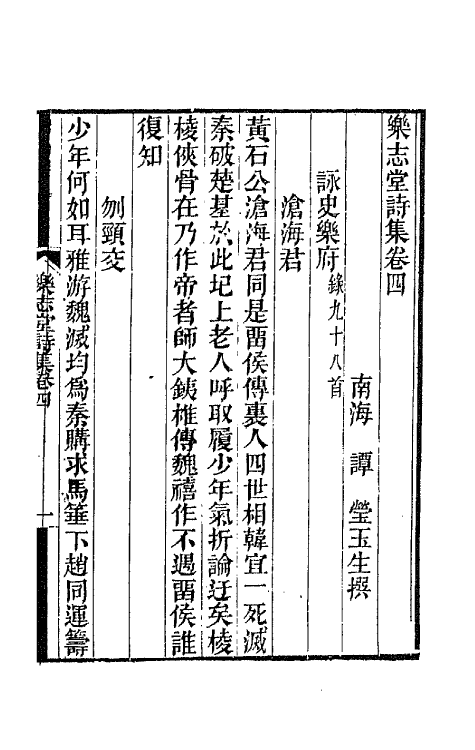 樂志堂詩集卷四
南海 譚 瑩玉生撰
詠史樂府錄九十八首
滄海君
黃石公滄海君同是畱侯傳裏人四世相韓宜一死滅
秦破楚基於此圯上老人呼取履少年氣折論迂矣棱
棱俠骨在乃作帝者師大鐵椎傳魏禧作不遇畱侯誰
復知
刎頸交
少年何如耳雅游魏滅均爲秦購求馬箠下趙同運籌
樂志堂詩集卷四
一